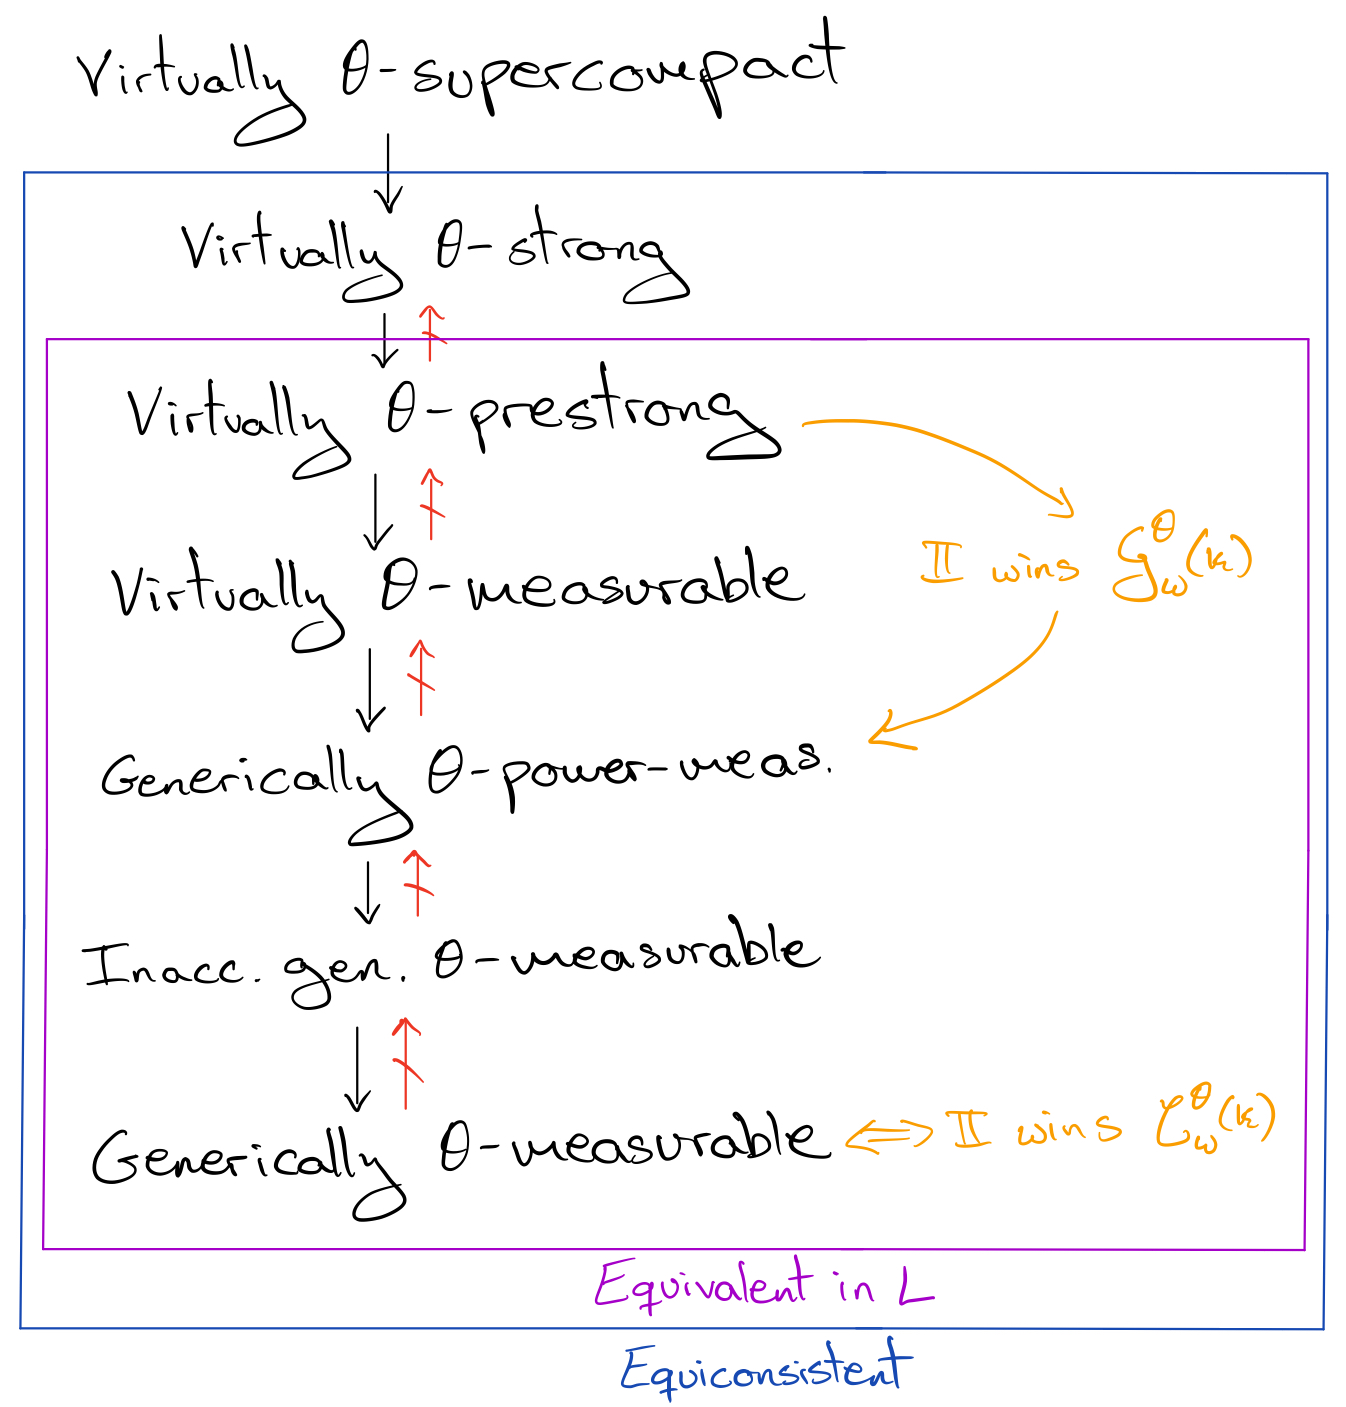 Virtually θ-supercompact
Virtually θ-strong
Virtually θ-prestrong
II wins 𝒢^θ_ω(κ)
Virtually θ-measurable
Generically θ-power-meas.
Inacc. gen. θ-measurable
Generically θ-measurable ⇔ II wins 𝒞^θ_ω(κ)
Equivalent in L
Equiconsistent